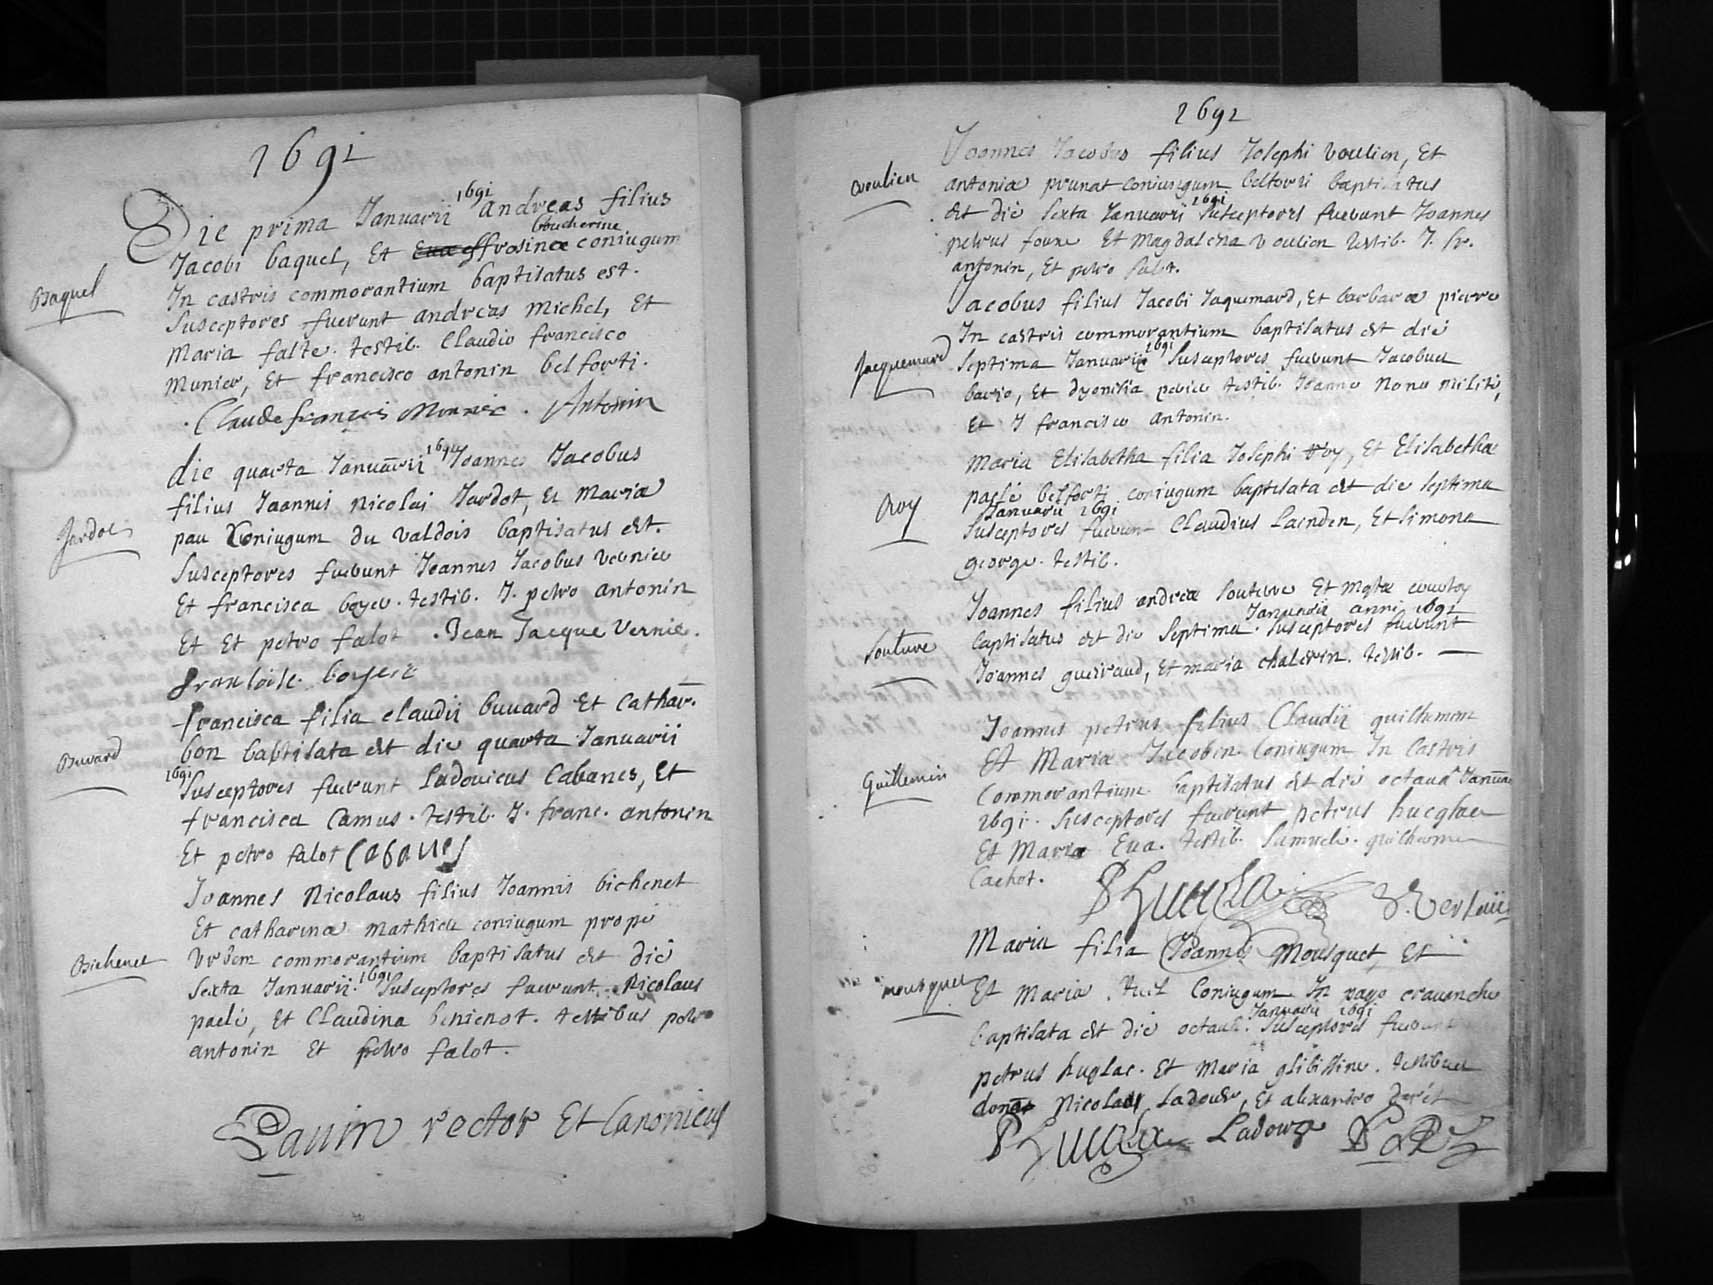 1691
Die prima Januarii 1691 andreas filius
Jacobi baquel, Et frosinæ boucherine coniugum
Baquel
In castris commorantium baptisatus est.
Susceptores fuerunt andreas michel, Et
maria falte. testib. Claudio francisco
munier, Et francisco antonin belforti.
Claude françois Monnier. Antonin
die quarta Januarii 1691 Joannes Jacobus
filius Joannis nicolai Jardot, Et maria
Jardot
pau Coniugum du valdois baptisatus est.
Susceptores fuerunt Joannes Jacobus vernier
Et francisca boyer. testib. J. petro antonin
Et Et petro falot. Jean Jacque Vernie.
francoise boyere
francisca filia claudii buuard Et Cathar.
Buuard
bon baptisata est die quarta Januarii
1691 Susceptores fuerunt Ludovicus Cabanes, Et
francisca Camus. testib. J. franc. antonin
Et petro falot Cabanes
Joannes Nicolaus filius Joannis bichenet
Et catharina mathieu coniugum prope
Bichenet
Urbem commorantium baptisatus est die
Sexta Januarii. 1691 Susceptores fuerunt Nicolaus
paeli, Et Claudina . testibus petro
antonin Et petro falot.
Pauin rector Et Canonicus
1691
Joannes Jacobus filius Josephi voulien, Et
voulien
antoniæ prunat coniugum belforti baptisatus
est die Sexta Januarii 1691 Susceptores fuerunt Joannes
petrus Et Magdalena voulien testib. J. fr.
antonin, Et petro falot.
Jacobus filius Jacobi Jaquemard, Et barbaræ pierre
In castris commorantium baptisatus est die
Jacquemard
Septima Januarii 1691 Susceptores fuerunt Jacobus
bario, Et dyonisia testib. Joanne militi,
Et J francisco antonin.
maria Elisabetha filia Josephi roy, Et Elisabethæ
Roy
paelé belforti coniugum baptisata est die Septima
Januarii 1691
Susceptores fuerunt Claudius Laenden, Et Simona
george. testib.
Joannes filius andreæ Souture Et
Januarii anni 1691
baptisatus est die Septima. Susceptores fuerunt
Souture
Joannes gueiraud, Et maria chalerin. testib.
Joannes petrus filius Claudii guilhemin
Et Maria Jacobin Coniugum In Castris
Guillemin
Commorantium baptisatus est die octaua Januar
1691. Susceptores fuerunt petrus
Et Maria Eua. testib. Samuele. guilheaume
Cachot.
Maria filia Joannis Mousquet Et
mousquet
Et Maria. Coniugum In pago crauanche
Januarii 1691
baptisata est die octaua. Susceptores fuerunt
petrus huglas. Et Maria . testibus
Nicolao Ladour, Et alexandro
Ladour